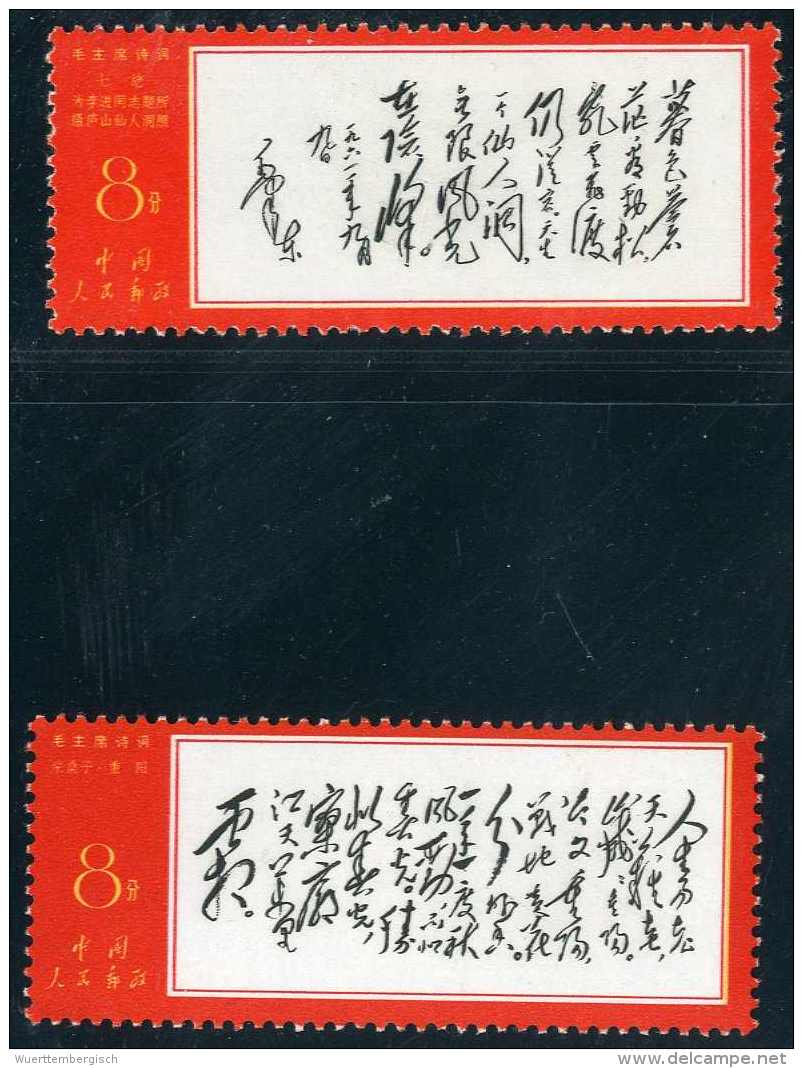 毛主席诗词
七绝
为李进同志题所
摄庐山仙人洞照
8分
中国
人民邮政
暮色苍
茫看劲松，
乱云飞渡
仍从容。天生
一个仙人洞，
无限风光
在险峰。
一九六一年九月
九日
毛泽东
毛主席诗词
采桑子·重阳
8分
中国
人民邮政
人生易老
天难老，
岁岁重阳。
今又重阳，
战地黄花
分外香。
一年一度秋
风劲，不似
春光。胜
似春光，
寥廓
江天万里
霜。
Wuerttembergisch
delcampe.net